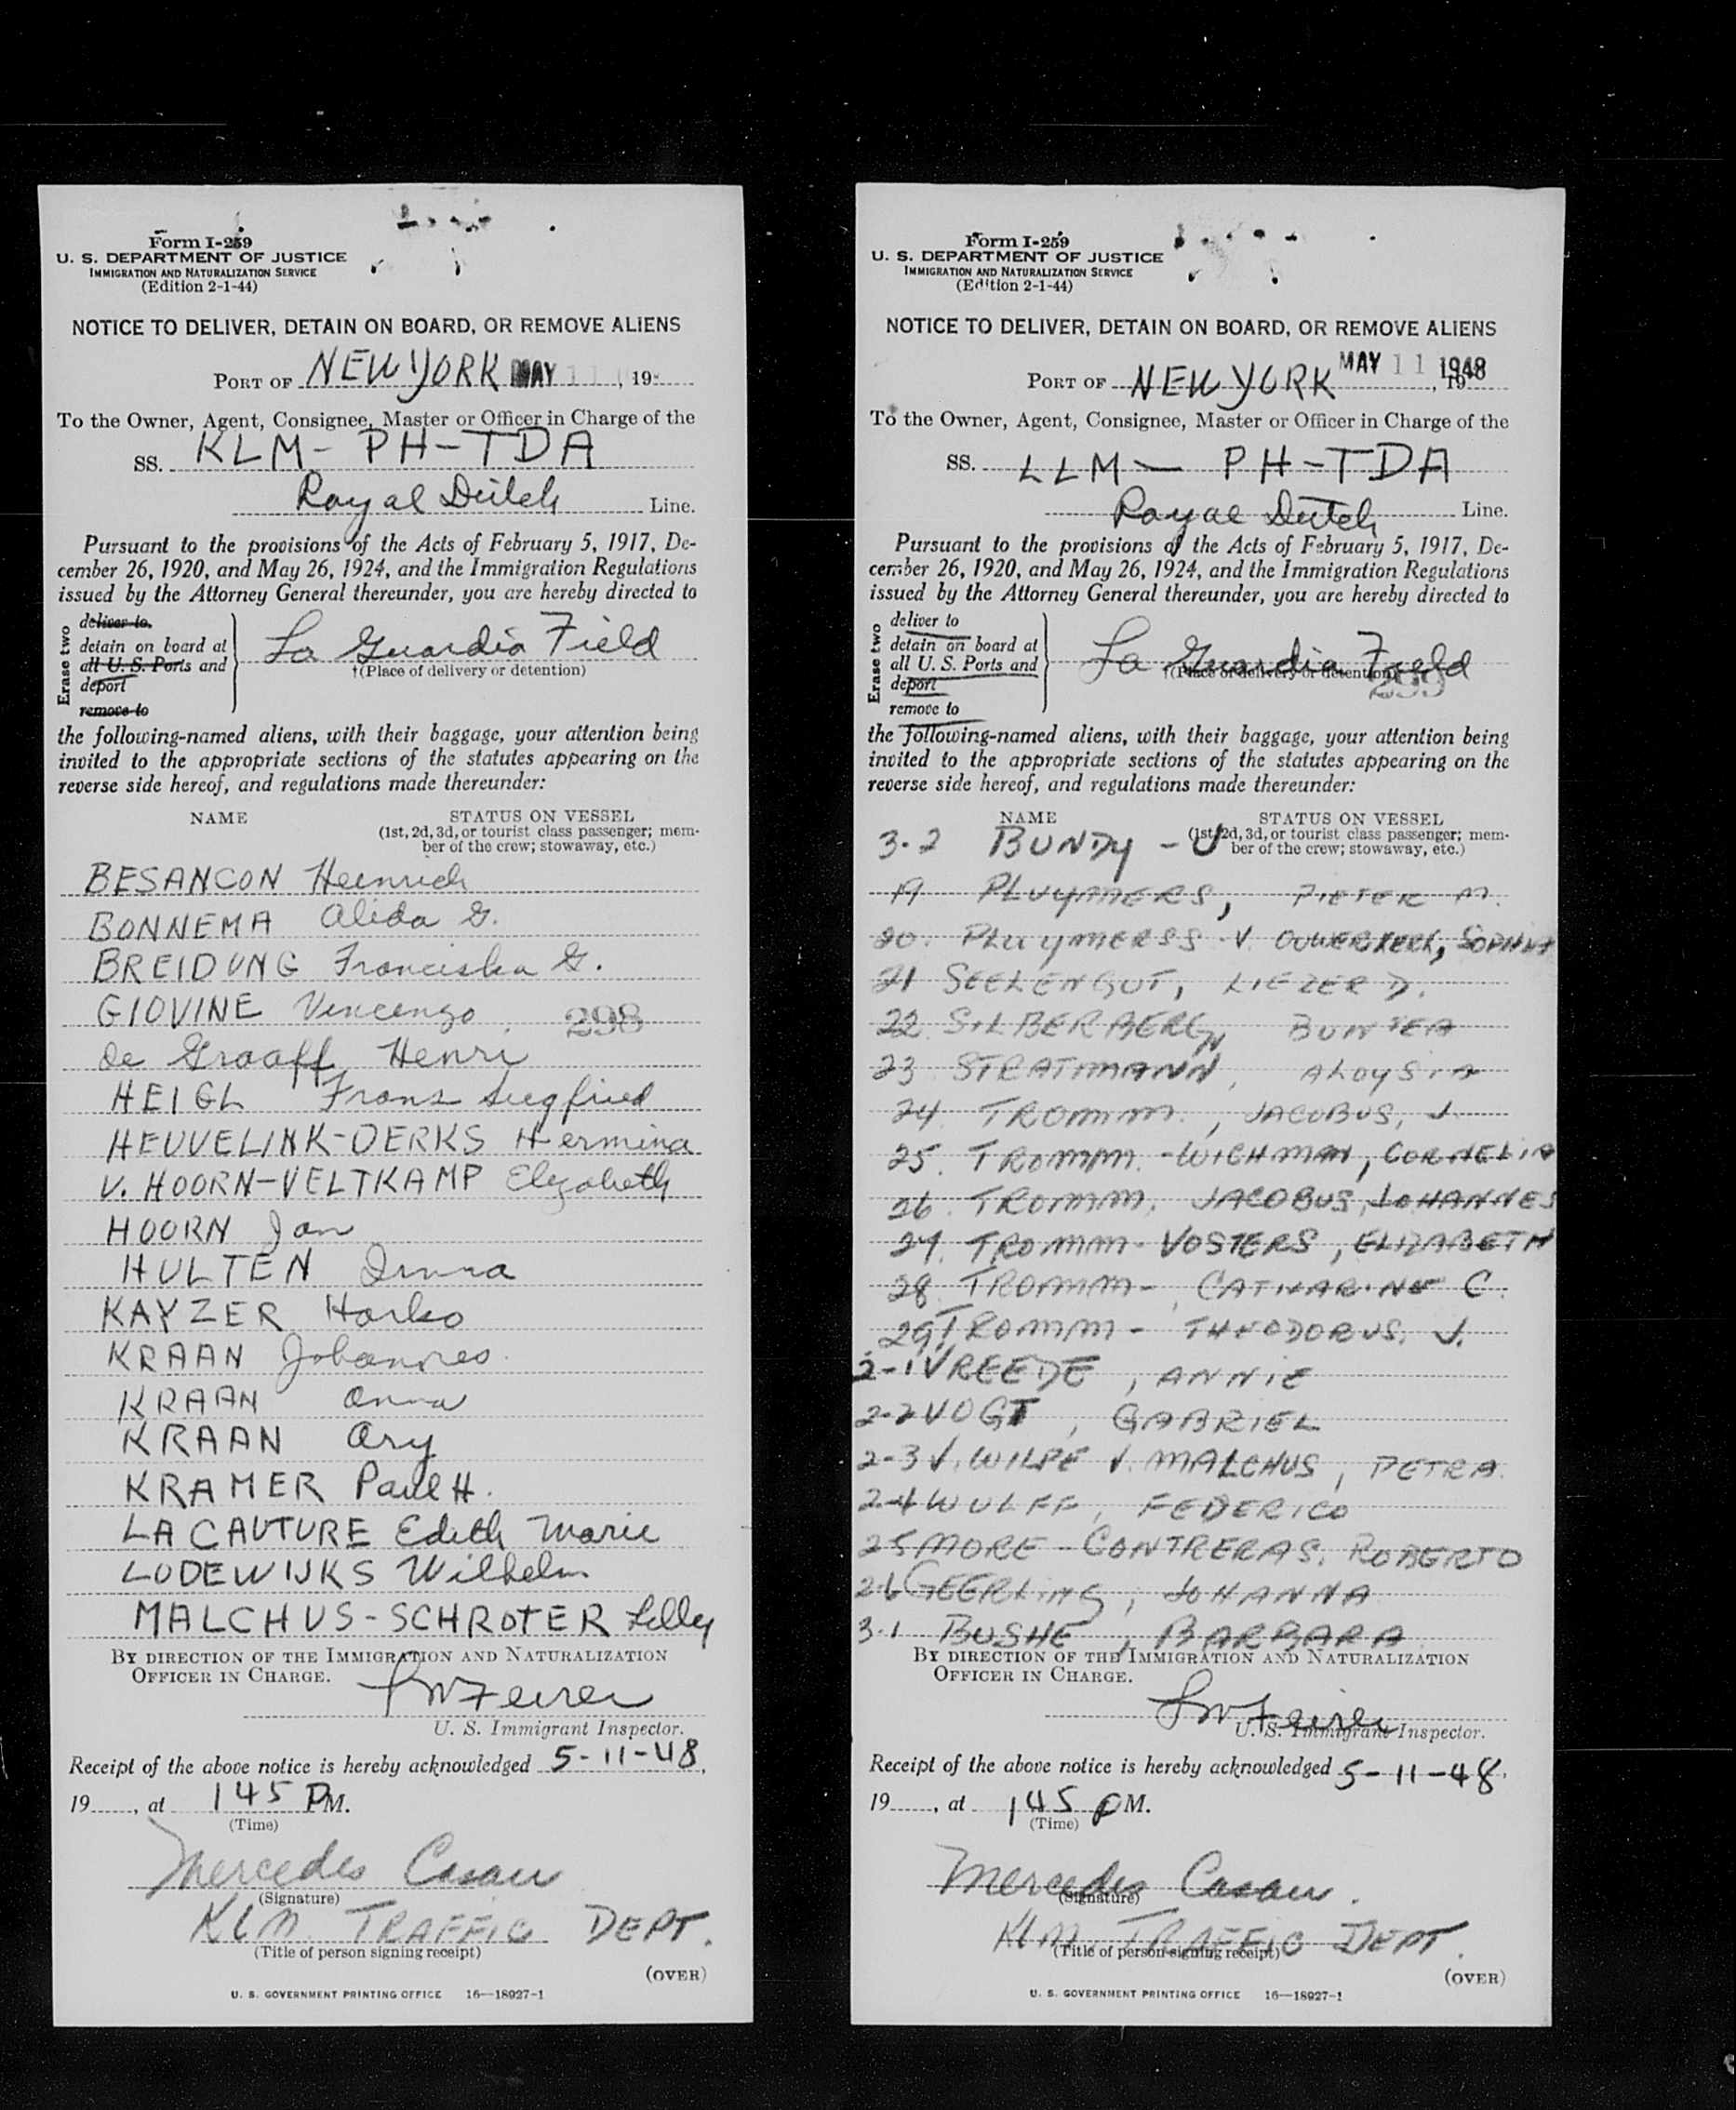 Form I-259
U. S. DEPARTMENT OF JUSTICE
IMMIGRATION AND NATURALIZATION SERVICE
(Edition 2-1-44)
NOTICE TO DELIVER, DETAIN ON BOARD, OR REMOVE ALIENS
PORT OF NEW YORK MAY 11, 19
To the Owner, Agent, Consignee, Master or Officer in Charge of the
SS. KLM- PH-TDA
Royal Dutch Line.
Pursuant to the provisions of the Acts of February 5, 1917, De-
cember 26, 1920, and May 26, 1924, and the Immigration Regulations
issued by the Attorney General thereunder, you are hereby directed to
Erase two
deliver to
detain on board at
all U. S. Ports and
deport
remove to
La Guardia Field
†(Place of delivery or detention)
the following-named aliens, with their baggage, your attention being
invited to the appropriate sections of the statutes appearing on the
reverse side hereof, and regulations made thereunder:
NAME STATUS ON VESSEL
(1st, 2d, 3d, or tourist class passenger; mem-
ber of the crew; stowaway, etc.)
BESANCON Heinrich
BONNEMA Alida G.
BREIDUNG Franciska G.
GIOVINE Vincenzo 298
de Graaff Henri
HEIGL Frans Siegfried
HEUVELINK-DERKS Hermina
V. HOORN-VELTKAMP Elizabeth
HOORN Jan
HULTEN
KAYZER Harko
KRAAN Johannes
KRAAN Anna
KRAAN Ary
KRAMER Paul H.
LA CAUTURE Edith Marie
LODEWIJKS Wilhelm
MALCHUS-SCHROTER Lilly
BY DIRECTION OF THE IMMIGRATION AND NATURALIZATION
OFFICER IN CHARGE.
U. S. Immigrant Inspector.
Receipt of the above notice is hereby acknowledged 5-11-48,
19, at 145 PM.
(Time)
Mercedes
(Signature)
KLM TRAFFIC DEPT.
(Title of person signing receipt)
(OVER)
U. S. GOVERNMENT PRINTING OFFICE 16—18927-1
Form I-259
U. S. DEPARTMENT OF JUSTICE
IMMIGRATION AND NATURALIZATION SERVICE
(Edition 2-1-44)
NOTICE TO DELIVER, DETAIN ON BOARD, OR REMOVE ALIENS
PORT OF NEW YORK MAY 11 1948, 19
To the Owner, Agent, Consignee, Master or Officer in Charge of the
SS. LLM— PH-TDA
Royal Dutch Line.
Pursuant to the provisions of the Acts of February 5, 1917, De-
cember 26, 1920, and May 26, 1924, and the Immigration Regulations
issued by the Attorney General thereunder, you are hereby directed to
Erase two
deliver to
detain on board at
all U. S. Ports and
deport
remove to
La Guardia Field
†(Place of delivery or detention)
299
the following-named aliens, with their baggage, your attention being
invited to the appropriate sections of the statutes appearing on the
reverse side hereof, and regulations made thereunder:
NAME STATUS ON VESSEL
(1st, 2d, 3d, or tourist class passenger; mem-
ber of the crew; stowaway, etc.)
3-2 BUNDY - U
19 PLUYMERS, PIETER M.
20. PLUYMERSS V. OUWERKERK, SOPHIA
21 SEELENGUT, LIEZER D.
22 SILBERBERG,
23 STRATMANN, ALOYSIA
24 TROMM., JACOBUS, J.
25. TROMM.-WICHMAN, CORNELIA
26. TROMM, JACOBUS, JOHANNES
27. TROMM- VOSTERS, ELIZABETH
28 TROMM-, CATHARINE C.
29 TROMM - THEODORUS. J.
2-1 VREEDE, ANNIE
2-2 VOGT, GABRIEL
2-3 V. WILPE V. MALCHUS, PETRA.
2-4 WULFF, FEDERICO
25 MORE - CONTRERAS. ROBERTO
26 GEERLING, JOHANNA
3-1 BUSHE, BARBARA
BY DIRECTION OF THE IMMIGRATION AND NATURALIZATION
OFFICER IN CHARGE.
U. S. Immigrant Inspector.
Receipt of the above notice is hereby acknowledged 5-11-48,
19, at 145 PM.
(Time)
Mercedes
(Signature)
KLM TRAFFIC DEPT.
(Title of person signing receipt)
(OVER)
U. S. GOVERNMENT PRINTING OFFICE 16—18927-1